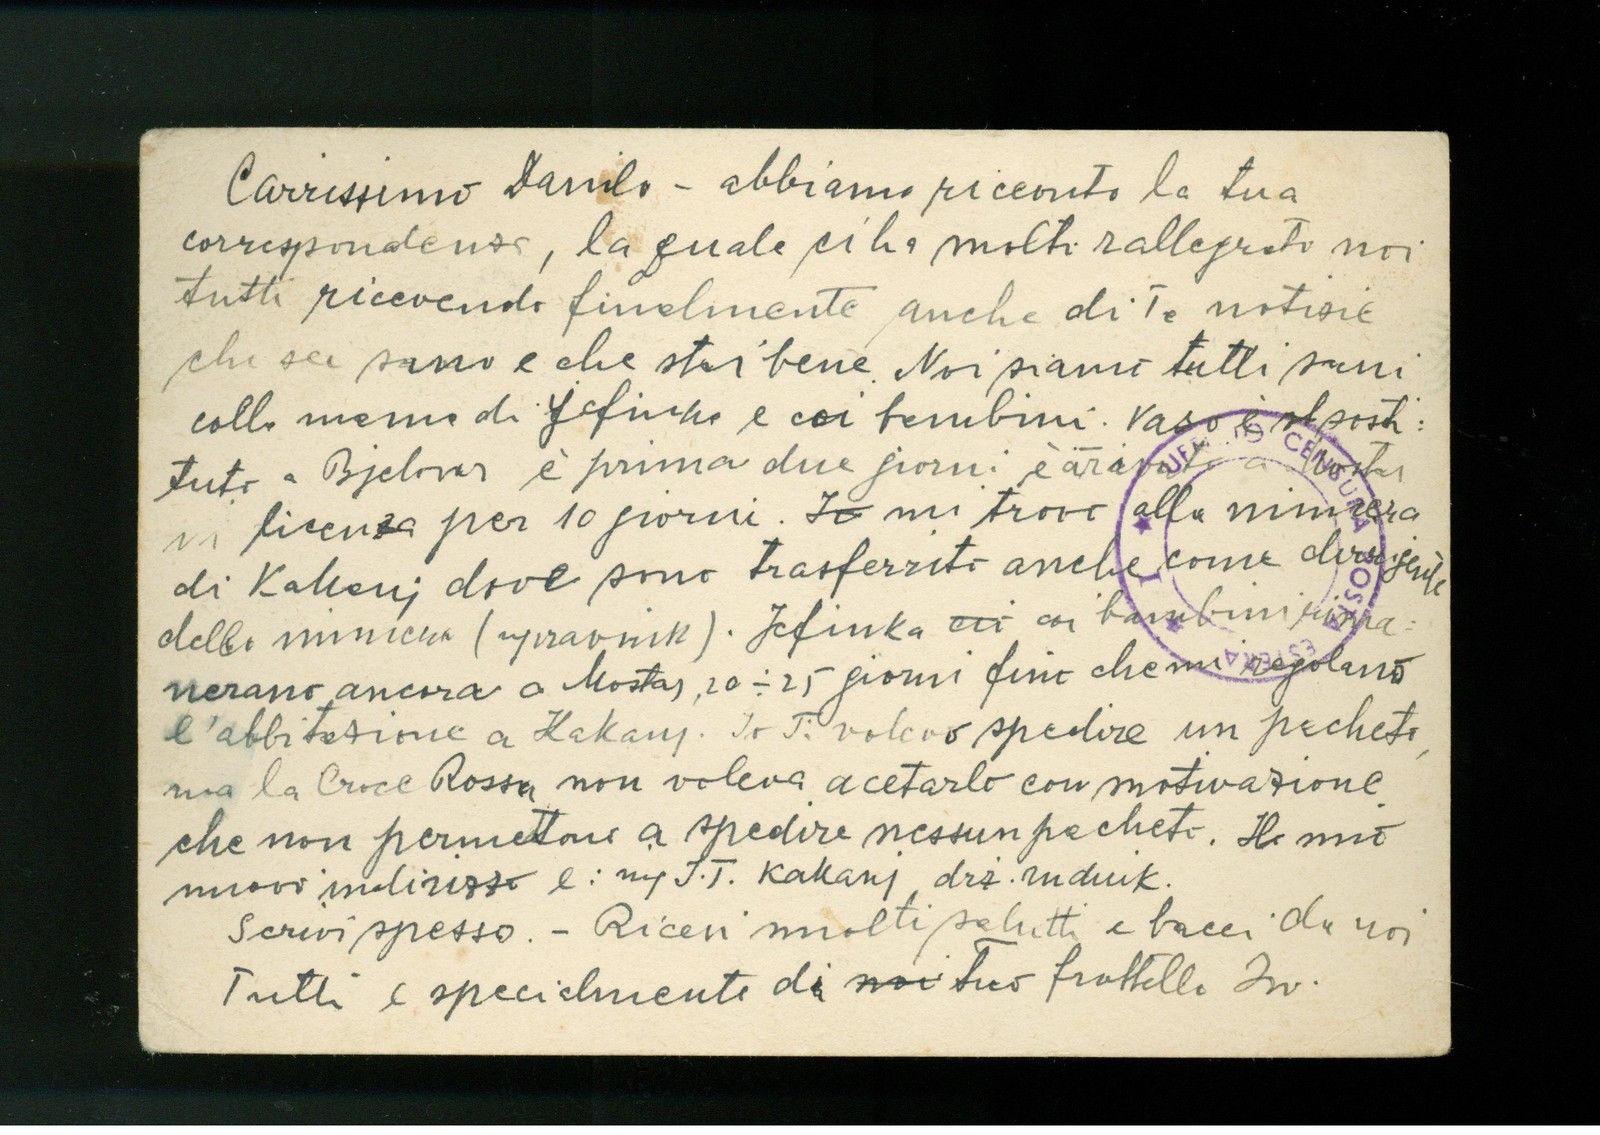 Carrissimo Danilo - abbiamo riceouto la tua
correspondenza, la quale ci ha molto rallegrato noi
tutti ricevendo finelmente anche di Te notizie
che sei sano e che stai bene. Noi siamo tutti sani
colla mama di Jefinka e coi bembini. Vaso è
tuto a Bjelovar è prima due giorni è a Mostar
in licenza per 10 giorni. Io mi trovo alla miniera
di Kakanj dove sono trasferrito anche come dirrigente
della miniera (upravnik). Jefinka coi bambini rima=
nerano ancora a Mostar, 20÷25 giorni fino che mi regolano
l'abbitazione a Kakanj. Io Ti volevo spedire un pacheto,
ma la Croce Rossa non voleva acetarlo con motivazione
che non permettono a spedire nessun pacheto. Il mio
nuovo indirizzo e: J.T. Kakanj drž. rudnik.
Scrivi spesso. - Ricevi molti saluti e bacci da noi
Tutti e specialmente da noi tuo frattello Ivo.
UFFICIO CENSURA POSTA ESTERA